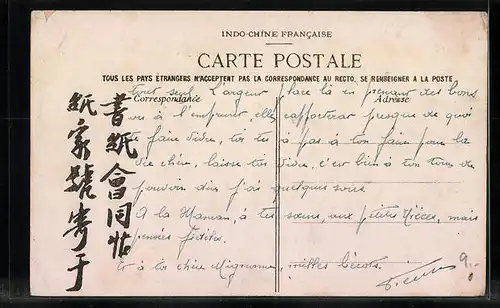 INDO-CHINE FRANÇAISE
CARTE POSTALE
TOUS LES PAYS ÉTRANGERS N'ACCEPTENT PAS LA CORRESPONDANCE AU RECTO. SE RENSEIGNER A LA POSTE
Correspondance
Adresse
tout seul. L'argent place là en prenant des bons
ou à l'emprunt, elle rapportera presque de quoi
te faire vivre, toi tu à pas à ton faire pour la
vie chère, laisse toi vivre, c'est bien à ton tour de
pouvoir dire j'ai quelques sous.
A la Maman, à tes sœurs, aux petites Nièces, mais
pensées fidèles.
et à toi chère Mignonne, milles bécots.
書紙會同帖
紙家號寄于